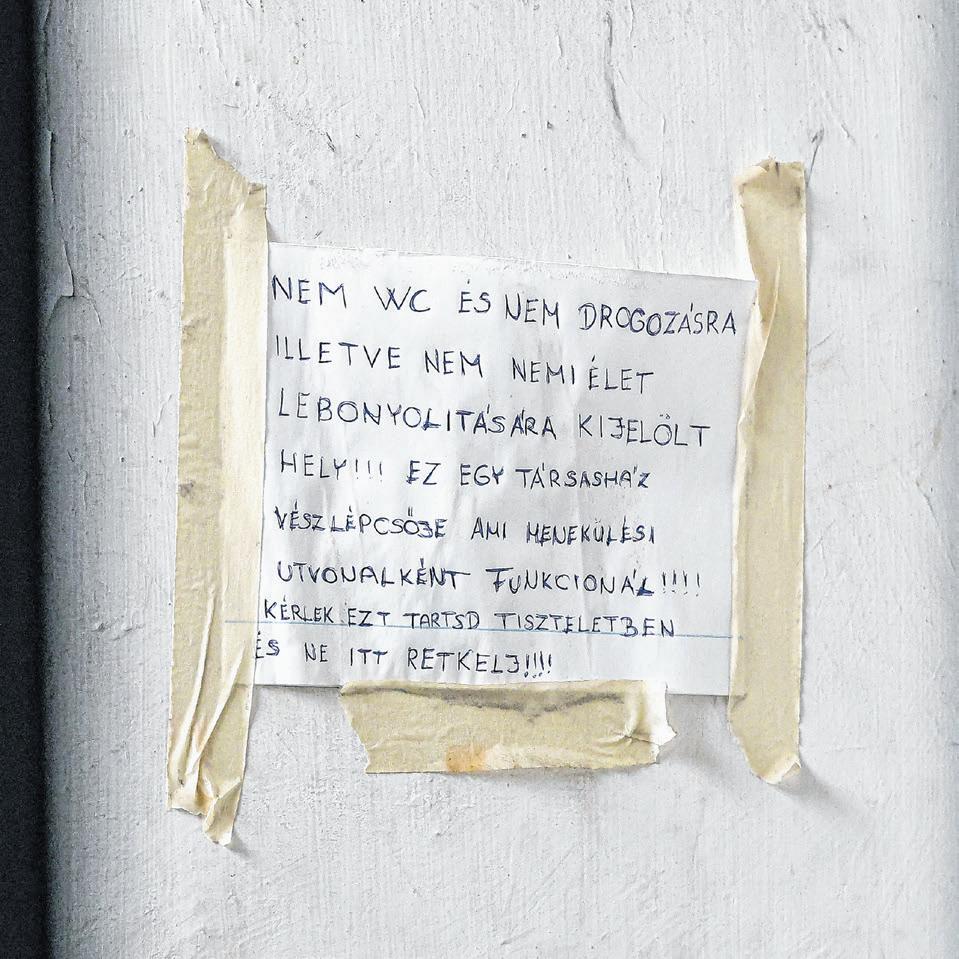 NEM WC ÉS NEM DROGOZÁSRA
ILLETVE NEM NEMI ÉLET
LEBONYOLITÁSÁRA KIJELÖLT
HELY!!! EZ EGY TÁRSASHÁZ
VÉSZLÉPCSŐJE AMI MENEKÜLÉSI
UTVONALKÉNT FUNKCIONÁL!!!!
KÉRLEK EZT TARTSD TISZTELETBEN
ÉS NE ITT RETKELJ!!!!